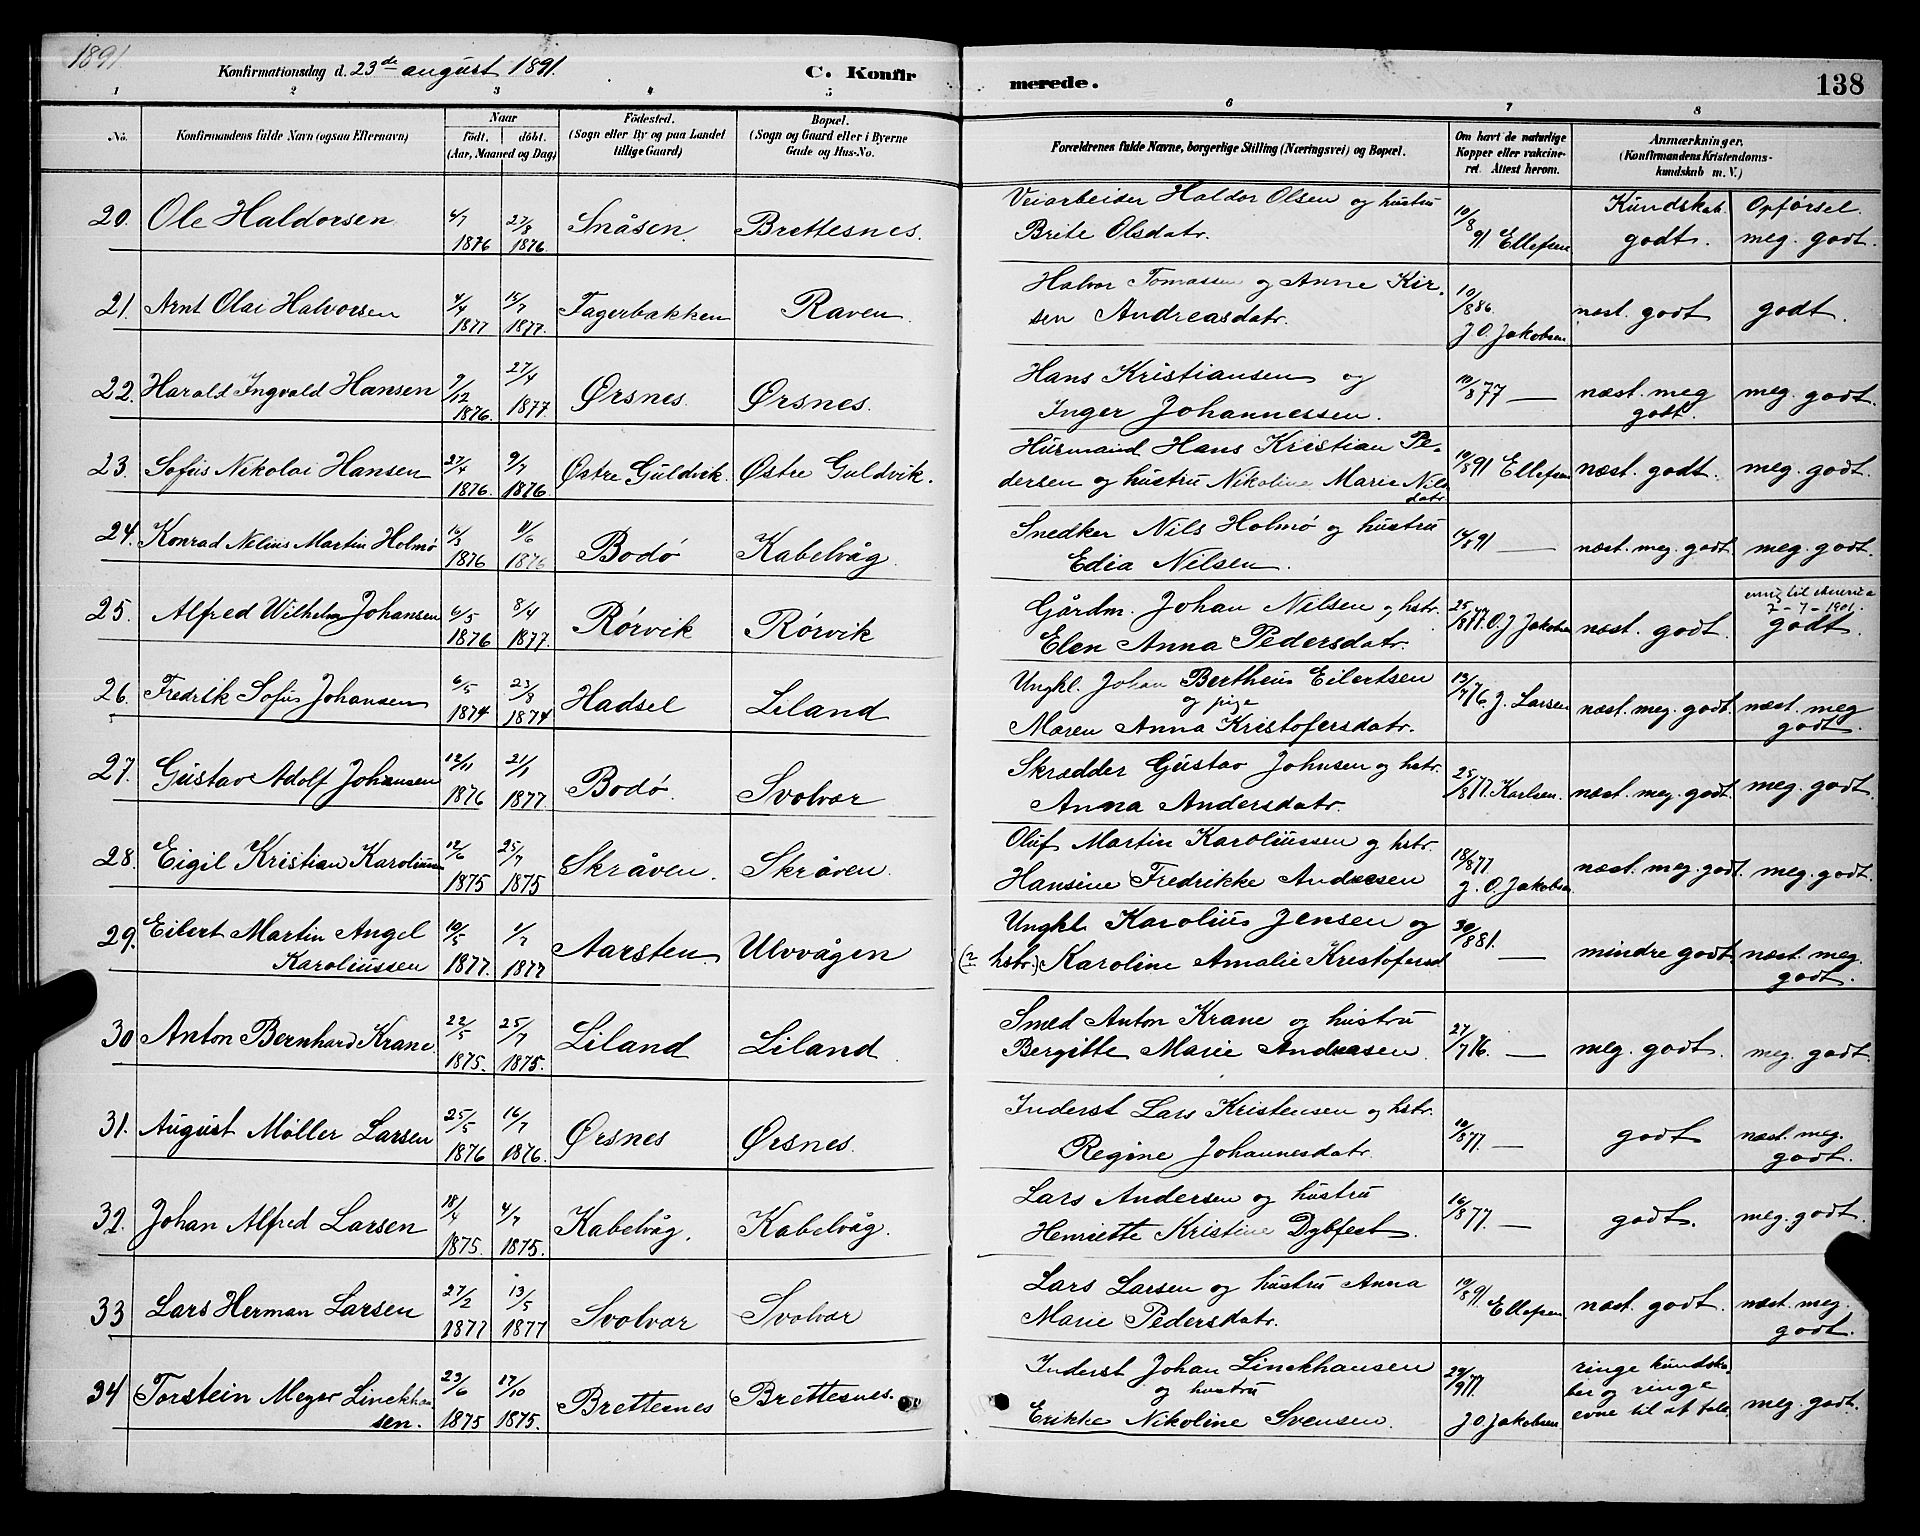 1891.
Konfirmationsdag d. 23de august 1891.
C. Konfir
merede.
138
1 2 3 4 5 6 7 8
No.
Konfirmandens fulde Navn (ogsaa Efternavn)
Naar
født. døbt.
(Aar, Maaned og Dag)
Fødested.
(Sogn eller By og paa Landet
tillige Gaard)
Bopæl.
(Sogn og Gaard eller i Byerne
Gade og Hus-No.
Forældrenes fulde Navne, borgerlige Stilling (Næringsvei) og Bopæl.
Om havt de naturlige
Kopper eller vakcine-
ret. Attest herom.
Anmærkninger.
(Konfirmandens Kristendoms-
kundskab m. V.)
Kundskab. Opførsel.
20. Ole Haldorsen 4/7 1876 27/8 1876. Snåsen. Brettesnes.
Veiarbeider Haldor Olsen og hustru
Brite Olsdatr.
10/8 91 Ellefsen godt. meg. godt.
21. Arnt Olai Halvorsen 4/4 1877 15/7 1877. Fagerbakken Raven.
Halvor Tomassen og Anne Kir-
sen Andreasdatr.
10/8 86. J. O. Jakobsen næst. godt godt.
22. Harald Ingvald Hansen 9/12 1876. 27/4 1877 Ørsnes. Ørsnes.
Hans Kristiansen og
Inger Johannessen.
10/8 77 — næst. meg godt. meg. godt.
23. Sofus Nikolai Hansen 27/4 1876. 9/7 1876. Østre Guldvik. Østre Guldvik.
Husmand Hans Kristian Pe-
dersen og hustru Nikoline Marie Nils
datr.
10/8 91 Ellefsen næst. godt. meg. godt.
24. Konrad Nelius Martin Holmø 16/3 1876 11/6 1876 Bodø Kabelvåg.
Snedker Nils Holmø og hustru
Edia Nilsen.
14/8 91 — næst. meg. godt. meg. godt.
25. Alfred Wilhelm Johansen 6/5 1876 8/4 1877. Rørvik Rørvik
Gårdm. Johan Nilsen og hstr.
Elen Anna Pedersdatr.
25/8 77. O. J. Jakobsen næst. godt.
7-7-1901.
godt.
26. Fredrik Sofus Johansen 6/5 1874 23/8 1874 Hadsel Liland
Ungkl. Johan Bertheus Eilertsen
og pige
Maren Anna Kristofersdatr.
13/7 76. J. Larsen næst. meg. godt. næst. meg godt.
27. Gustav Adolf Johansen 12/11 1876 21/1 1877. Bodø. Svolvær
Skrædder Gustav Johnsen og hstr.
Anna Andersdatr.
25/8 77. Karlsen. næst. meg. godt. meg. godt.
28. Eigil Kristian Karoliussen 12/6 1875 25/7 1875 Skråven. Skråven.
Oluf Martin Karoliussen og hstr.
Hansine Fredrikke Andresen
18/8 77 J. O. Jakobsen næst. meg. godt. meg. godt.
29. Eilert Martin Angel
Karoliussen 10/5 1877. 1/7 1877 Aarsten. Ulvvågen
Ungkl. Karolius Jensen og
(? hstr.) Karoline Amalie Kristofersd
30/8 81. — mindre godt. næst. meg. godt.
30 Anton Bernhard Krane 22/5 1875. 25/7 1875. Liland Liland.
Smed Anton Krane og hustru
Bergitte Marie Andreasen.
27/7 76. — meg. godt. meg. godt.
31. August Møller Larsen 25/5 1876 16/7 1876. Ørsnes Ørsnes.
Inderst Lars Kristensen og hstr.
Regine Johannesdatr.
10/8 77. — godt næst. meg. godt.
32. Johan Alfred Larsen 18/4 1875. 4/7 1875. Kabelvåg. Kabelvåg.
Lars Andersen og hustru
Henriette Kristine Dybfest.
16/8 77. — godt. meg. godt.
33 Lars Herman Larsen 27/2 1877 13/5 1877 Svolvær Svolvær
Lars Larsen og hustru Anna
Marie Pedersdatr.
10/8 91. Ellefsen næst. godt. næst. meg. godt.
34 Torstein Meyer Linckhau
sen. 23/6 1875 17/10 1875. Brettesnes Brettesnes.
Inderst Johan Linckhausen
og hustru
Erikke Nikoline Svensen.
29/9 77. J O Jakobsen
ringe kundska-
ber og ringe
evne til at tale
meg. godt.